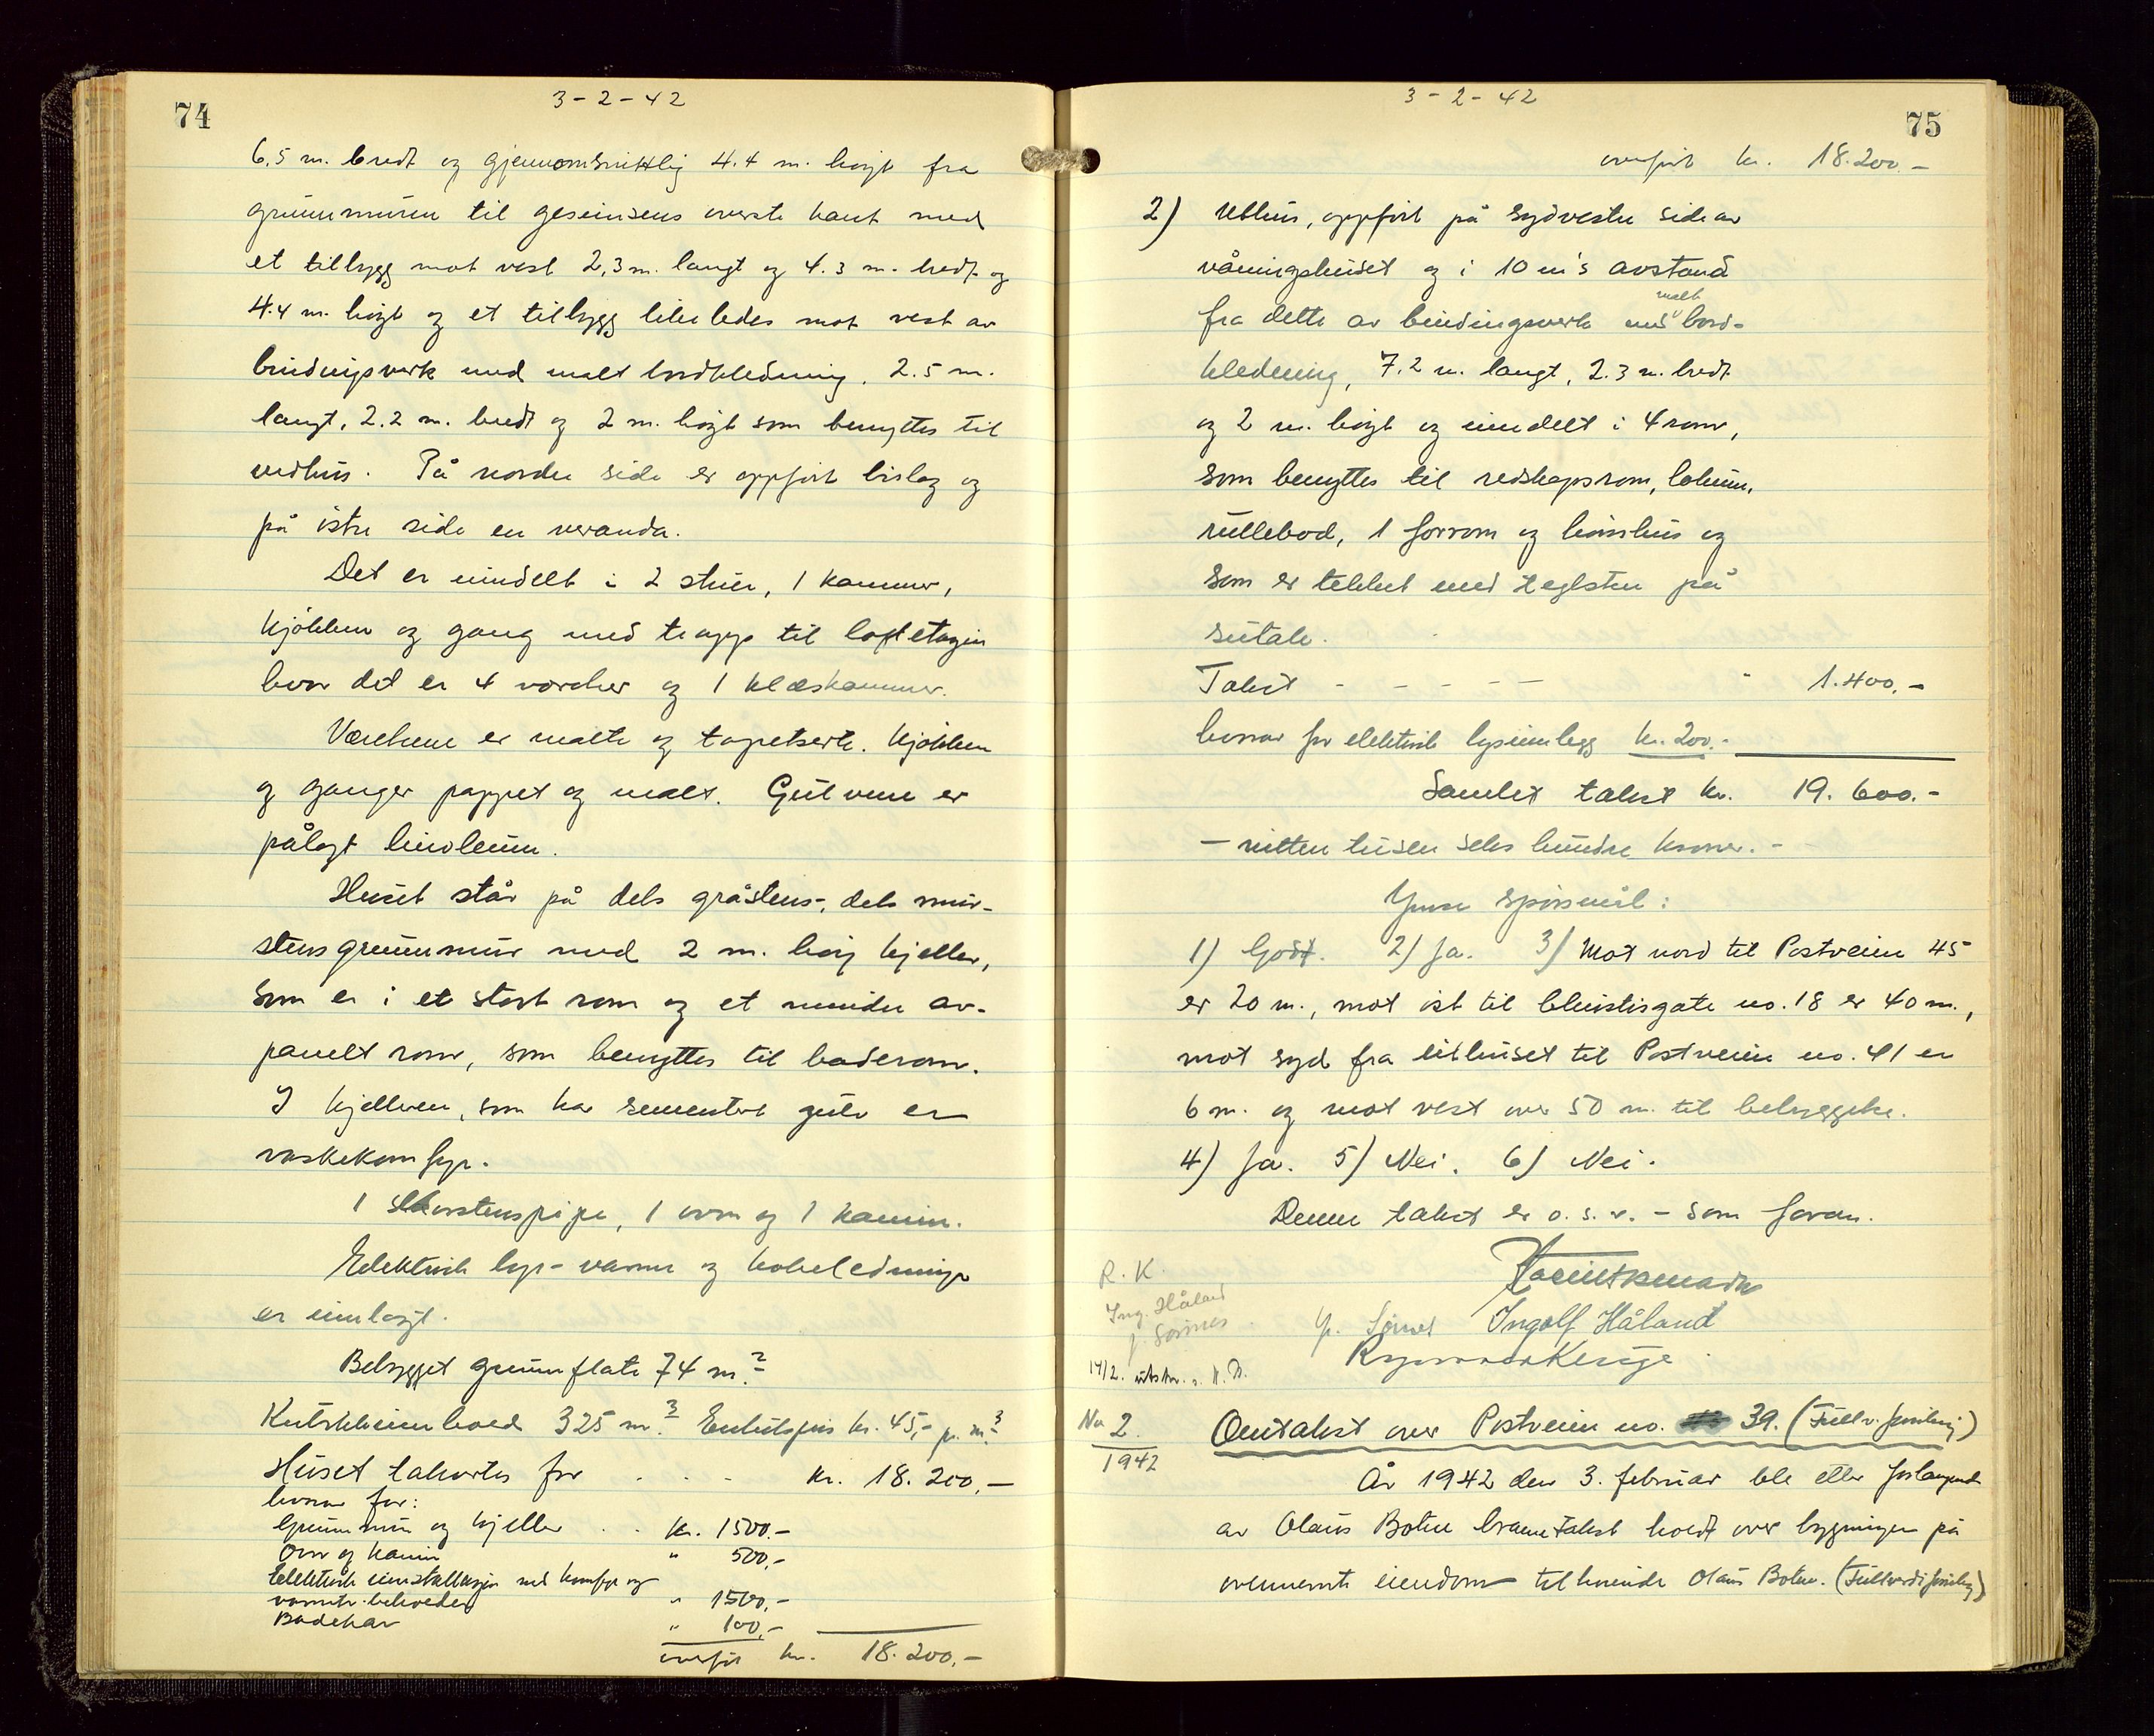 74
3-2-42
6,5 m. bredt og gjennomsnittlig 4.4 m. høyt fra
grunnmuren til gesimsens øverste kant med
et tilbygg mot vest 2,3 m. langt og 4.3 m. bredt og
4.4 m. høyt og et tilbygg likeledes mot vest av
bindingsverk med malt bordkledning, 2.5 m.
langt, 2.2 m. bredt og 2 m. høyt som benyttes til
vedhus. På nordre side er oppført bislag og
på østre side en veranda.
Det er inndelt i 2 stuer, 1 kammer,
kjøkken og gang med trapp til loftetagen
hvor det er 4 værelser og 1 klæskammer.
Værelsene er malte og tapetserte. Kjøkken
og ganger pappet og malt. Gulvene er
pålagt linoleum.
Huset står på dels gråstens-, dels mur-
stens grunnmur med 2 m. høy kjeller,
som er i et stort rom og et mindre av-
panelt rom, som benyttes til baderom.
I kjelleren, som har sementert gulv er
vaskekomfyr.
1 skorstenspipe, 1 ovn og 1 kamin.
Elektrisk lys- vann og kokeledninger
er innlagt.
Bebygget grunnflate 74 m.²
Kubikkinnhold 325 m.³ Enhetspris kr. 45,- pr. m.³
Huset takseres for . . - kr. 18.200,-
hvorav for:
Grunnmur og kjeller . . kr. 1500.-
Ovn og kamin " 500,-
Elektrisk installasjon med komfyr og
varmtv.beholder " 1500,-
Badekar " 100,-
overført kr. 18.200,-
3-2-42
75
overført kr. 18.200.-
2) Uthus, oppført på sydvestre side av
våningshuset og i 10 m's avstand
fra dette av bindingsverk med malt bord-
kledning, 7.2 m. langt, 2.3 m. bredt
og 2 m. høyt og inndelt i 4 rom,
som benyttes til redskapsrom, lokum,
rullebod, 1 forrom og hønsehus og
som er tekket med teglsten på
sutak.
Takst - - - - - - " 1.400,-
hvorav for elektrisk lysinnlegg kr. 200.-
Samlet takst kr. 19.600.-
- nitten tusen seks hundre kroner. -
Ymse spørsmål:
1) Godt. 2) Ja. 3) Mot nord til Postveien 45
er 20 m., mot øst til Christisgate no. 18 er 40 m.,
mot syd fra uthuset til Postveien no. 41 er
6 m. og mot vest over 50 m. til bebyggelse.
4) Ja. 5) Nei. 6) Nei.
Denne takst er o.s.v. - som foran.
R. K.
Ing. Håland
J. Sørnes
Ingolf Håland
14/2. utskr. s. N. B.
No 2
1942
Omtakst over Postveien no. 39. (Fullv. forsikring)
År 1942 den 3. februar ble etter forlangende
av Olaus Botne branntakst holdt over bygningen på
ovennevnte eiendom tilhørende Olaus Botne. (Fullverdiforsikring)